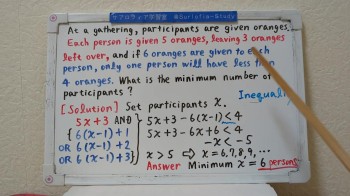 サブロウィア学習室 @Suriofia-Study
At a gathering, participants are given oranges.
Each person is given 5 oranges, leaving 3 oranges
left over, and if 6 oranges are given to each
person, only one person will have less than
4 oranges. What is the minimum number of
participants?
Inequality
[Solution] Set participants x.
5x+3 AND
{ 6(x-1)+1
OR 6(x-1)+2
OR 6(x-1)+3 }
5x+3-6(x-1)<4
5x+3-6x+6<4
-x<-5
x>5 ⇨ x=6,7,8,9,...
Answer Minimum x=6 persons